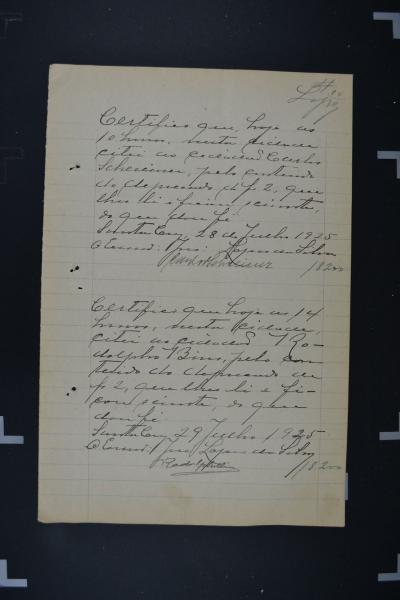 Lopes
Certifico que, hoje as
10 horas, nesta cidade
citei ao cidadão Carlos
Schreiner, pelo contendo
do despacho de f. 2, que
lhe li e ficou sciente,
do que dou fé.
Santa Cruz, 28 de Julho 1925
O Escrivão: Lopes da Silva
18200
Certifico que, hoje as 14
horas, nesta cidade,
citei ao cidadão Ro-
dolpho Bins, pelo con-
tendo do despacho de
f. 2, que lhe li e fi-
cou sciente, do que
dou fé.
Santa Cruz 29 Julho 1925
O Lopes da Silva
18200